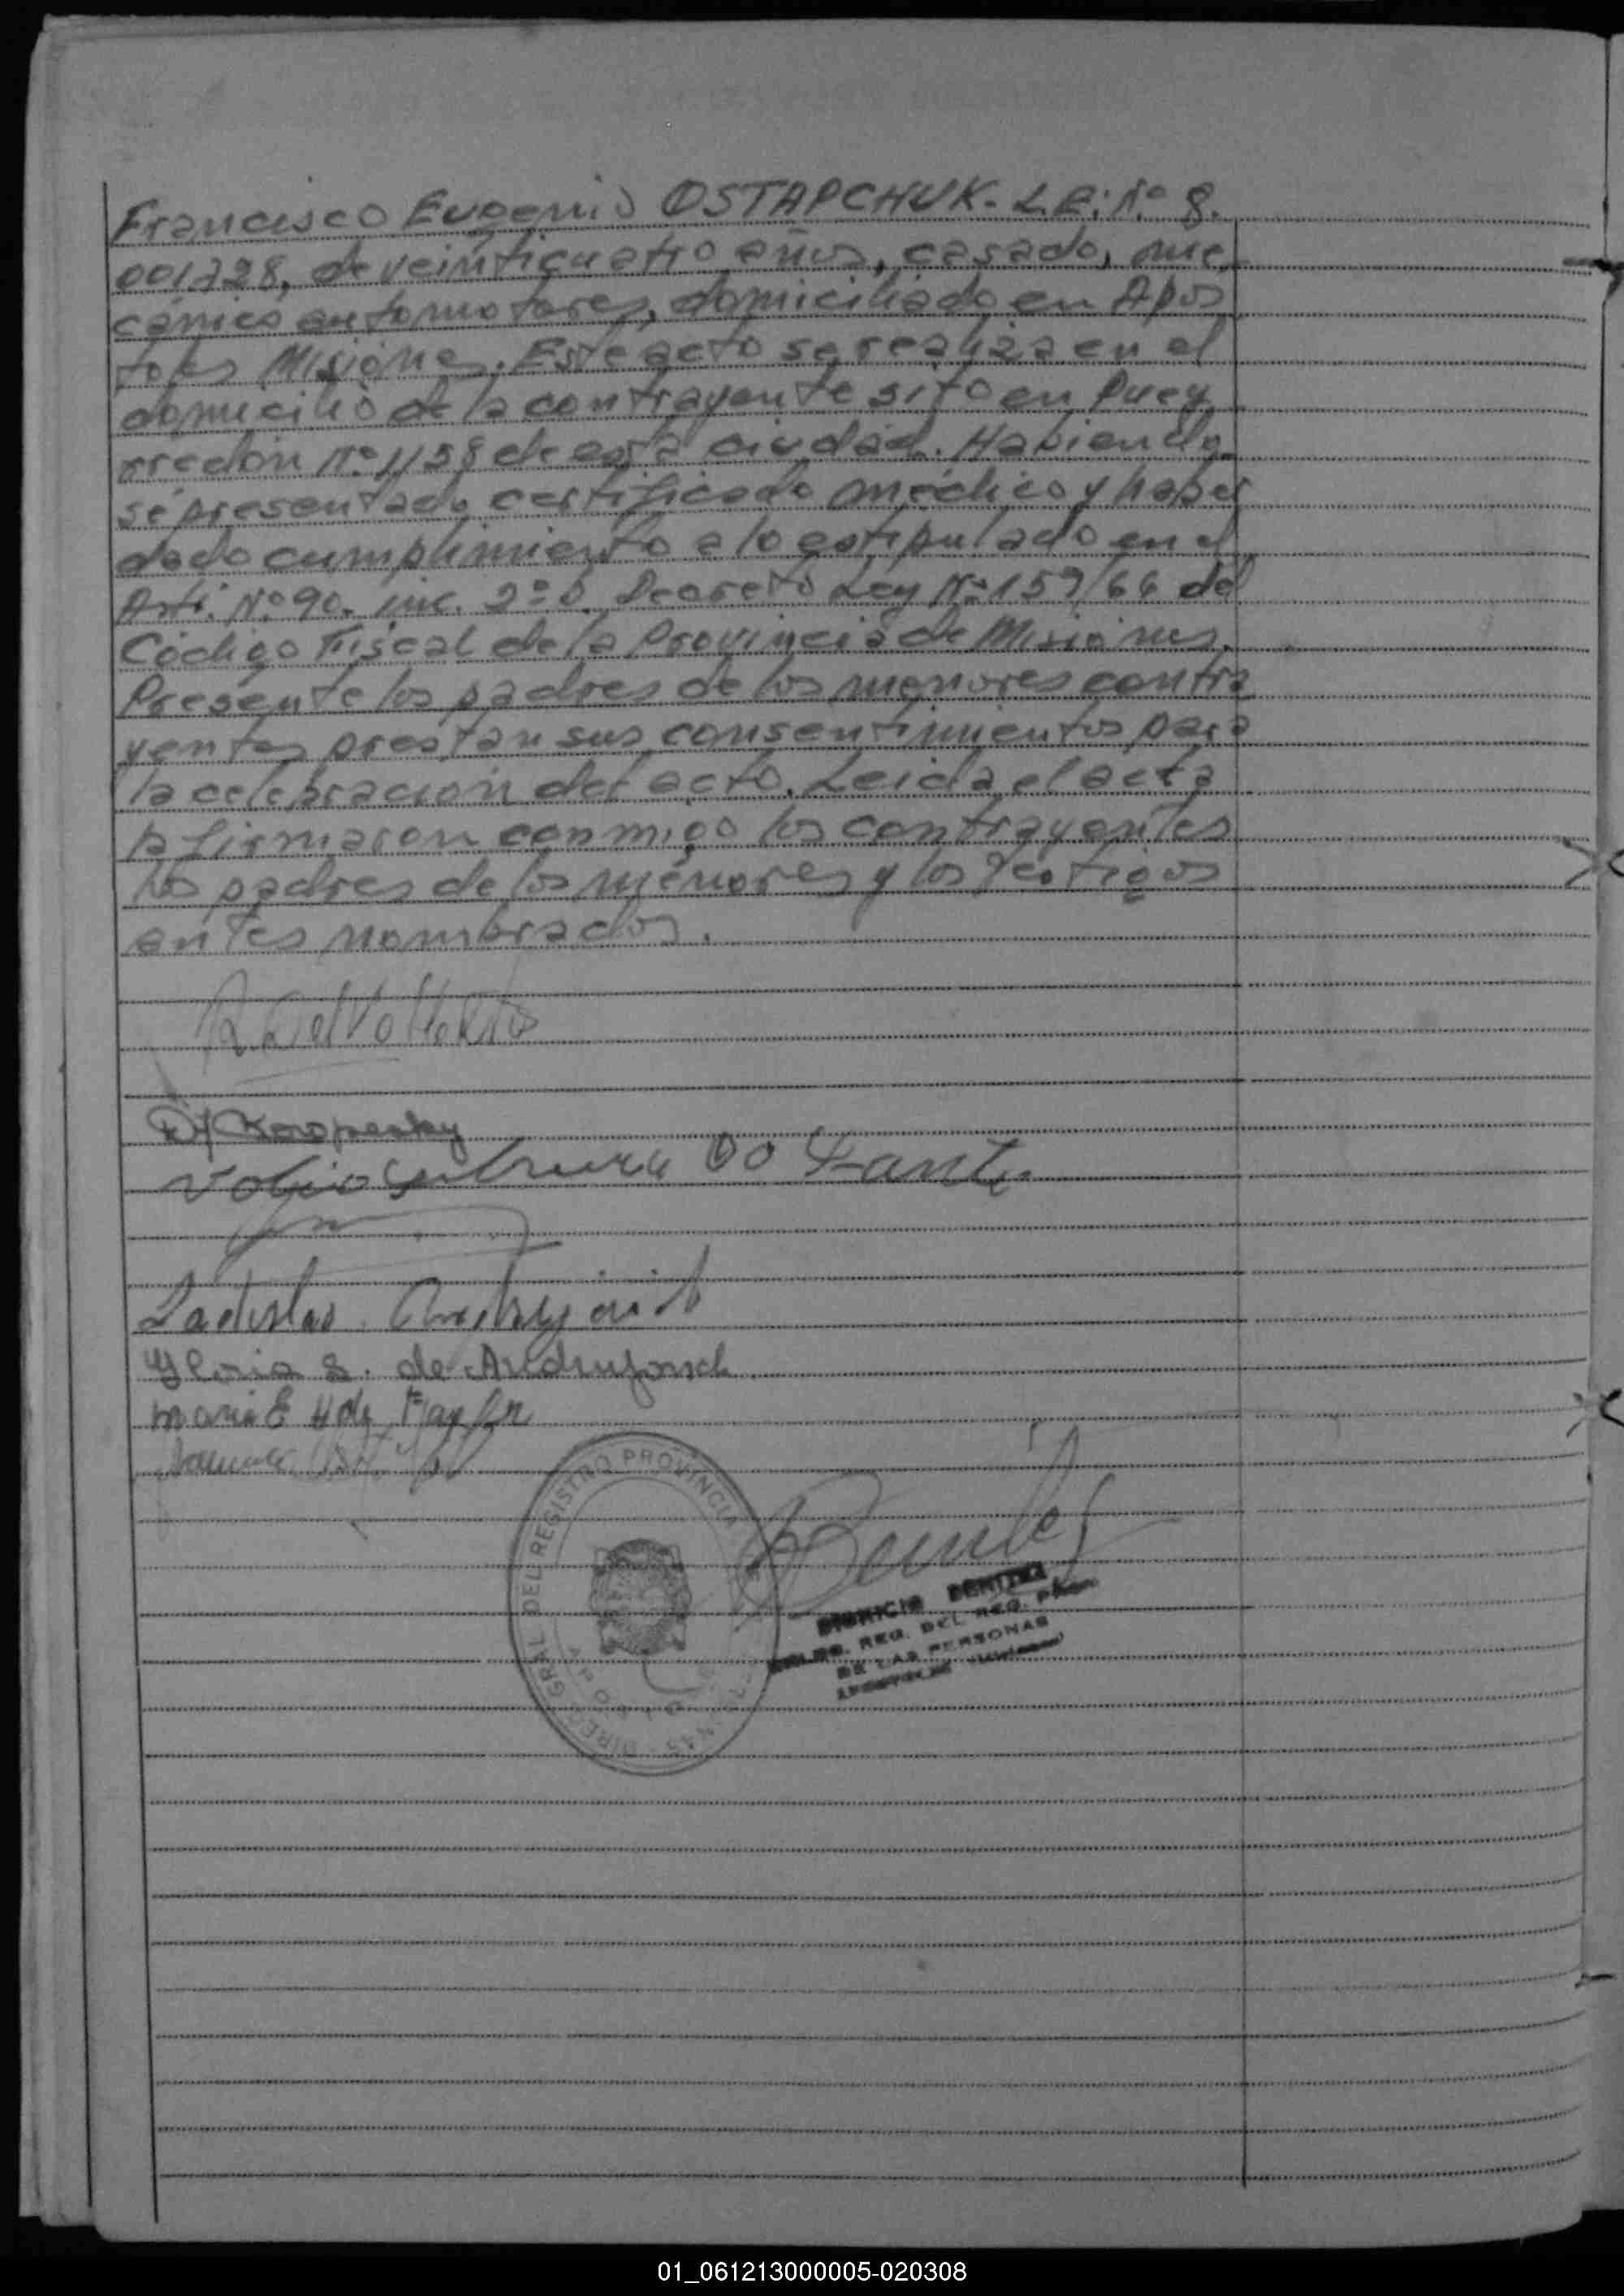 Francisco Eugenio OSTAPCHUK. L.E: N° 8.
001728, de veinticuatro años, casado, me
cánico automotores, domiciliado en Após
toles Misiones. Este acto se realiza en el
domicilio de la contrayente sito en Puey
rredón N° 1158 de esta ciudad. Habiendo
se presentado certificado médico y haber
dado cumplimiento a lo estipulado en el
Art. N° 90. inc. 2° b. Decreto Ley N° 159/66 del
Código Fiscal de la Provincia de Misiones.
Presente los padres de los menores contra
yentes prestan sus consentimientos para
la celebración del acto. Leida el acta
la firmaron conmigo los contrayentes
los padres de los menores y los testigos
antes nombrados.
Koropesky
Ladislao
Gloria S. de Andrujovich
Maria E
DIREC. GRAL DEL REGISTRO PROVINCIA
DIONICIO BENITEZ
REG. DEL REG. PROV.
DE LAS PERSONAS
01_061213000005-020308